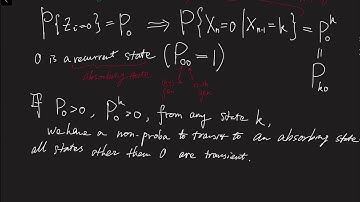 P{Z_{i=0}} = P_0 ⟹ P{X_n=0 | X_{n-1}=k} = P_0^k
0 is a recurrent state (P_{00}=1) = P_{k0}
absorbing state
If P_0>0, P_0^k>0, from any state k,
we have a non- proba to transit to an absorbing state
all states other them 0 are transient.